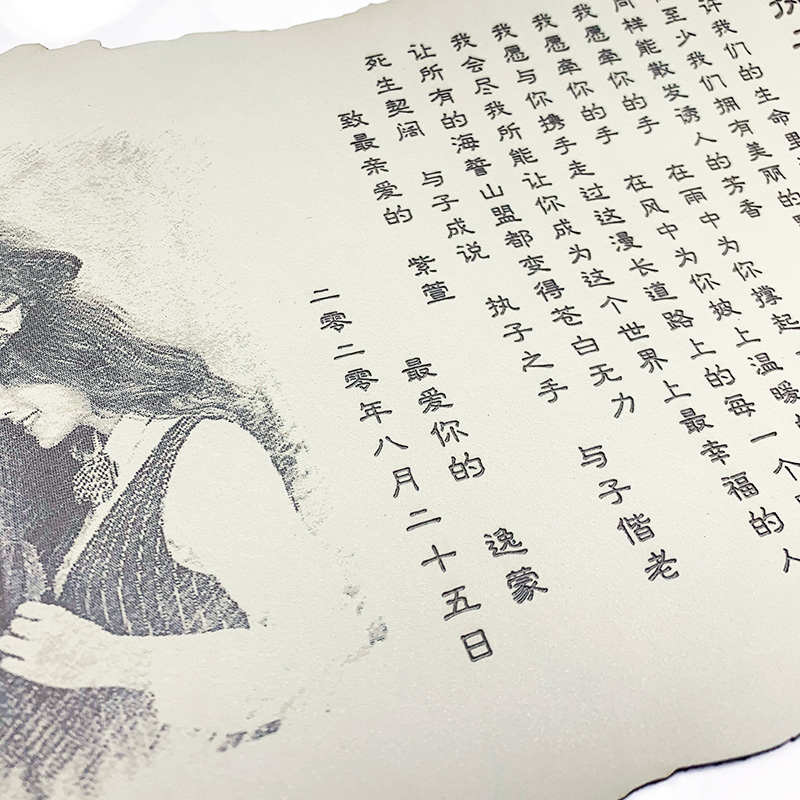 许我们的生命里
至少我们拥有美丽的
同样能散发诱人的芳香
我愿牵你的手 在雨中为你撑起
我愿牵你的手 在风中为你披上温暖
我愿与你携手走过这漫长道路上的每一个
我会尽我所能让你成为这个世界上最幸福的人
让所有的海誓山盟都变得苍白无力
死生契阔 与子成说 执子之手 与子偕老
致最亲爱的 紫萱 最爱你的 逸蒙
二零二零年八月二十五日